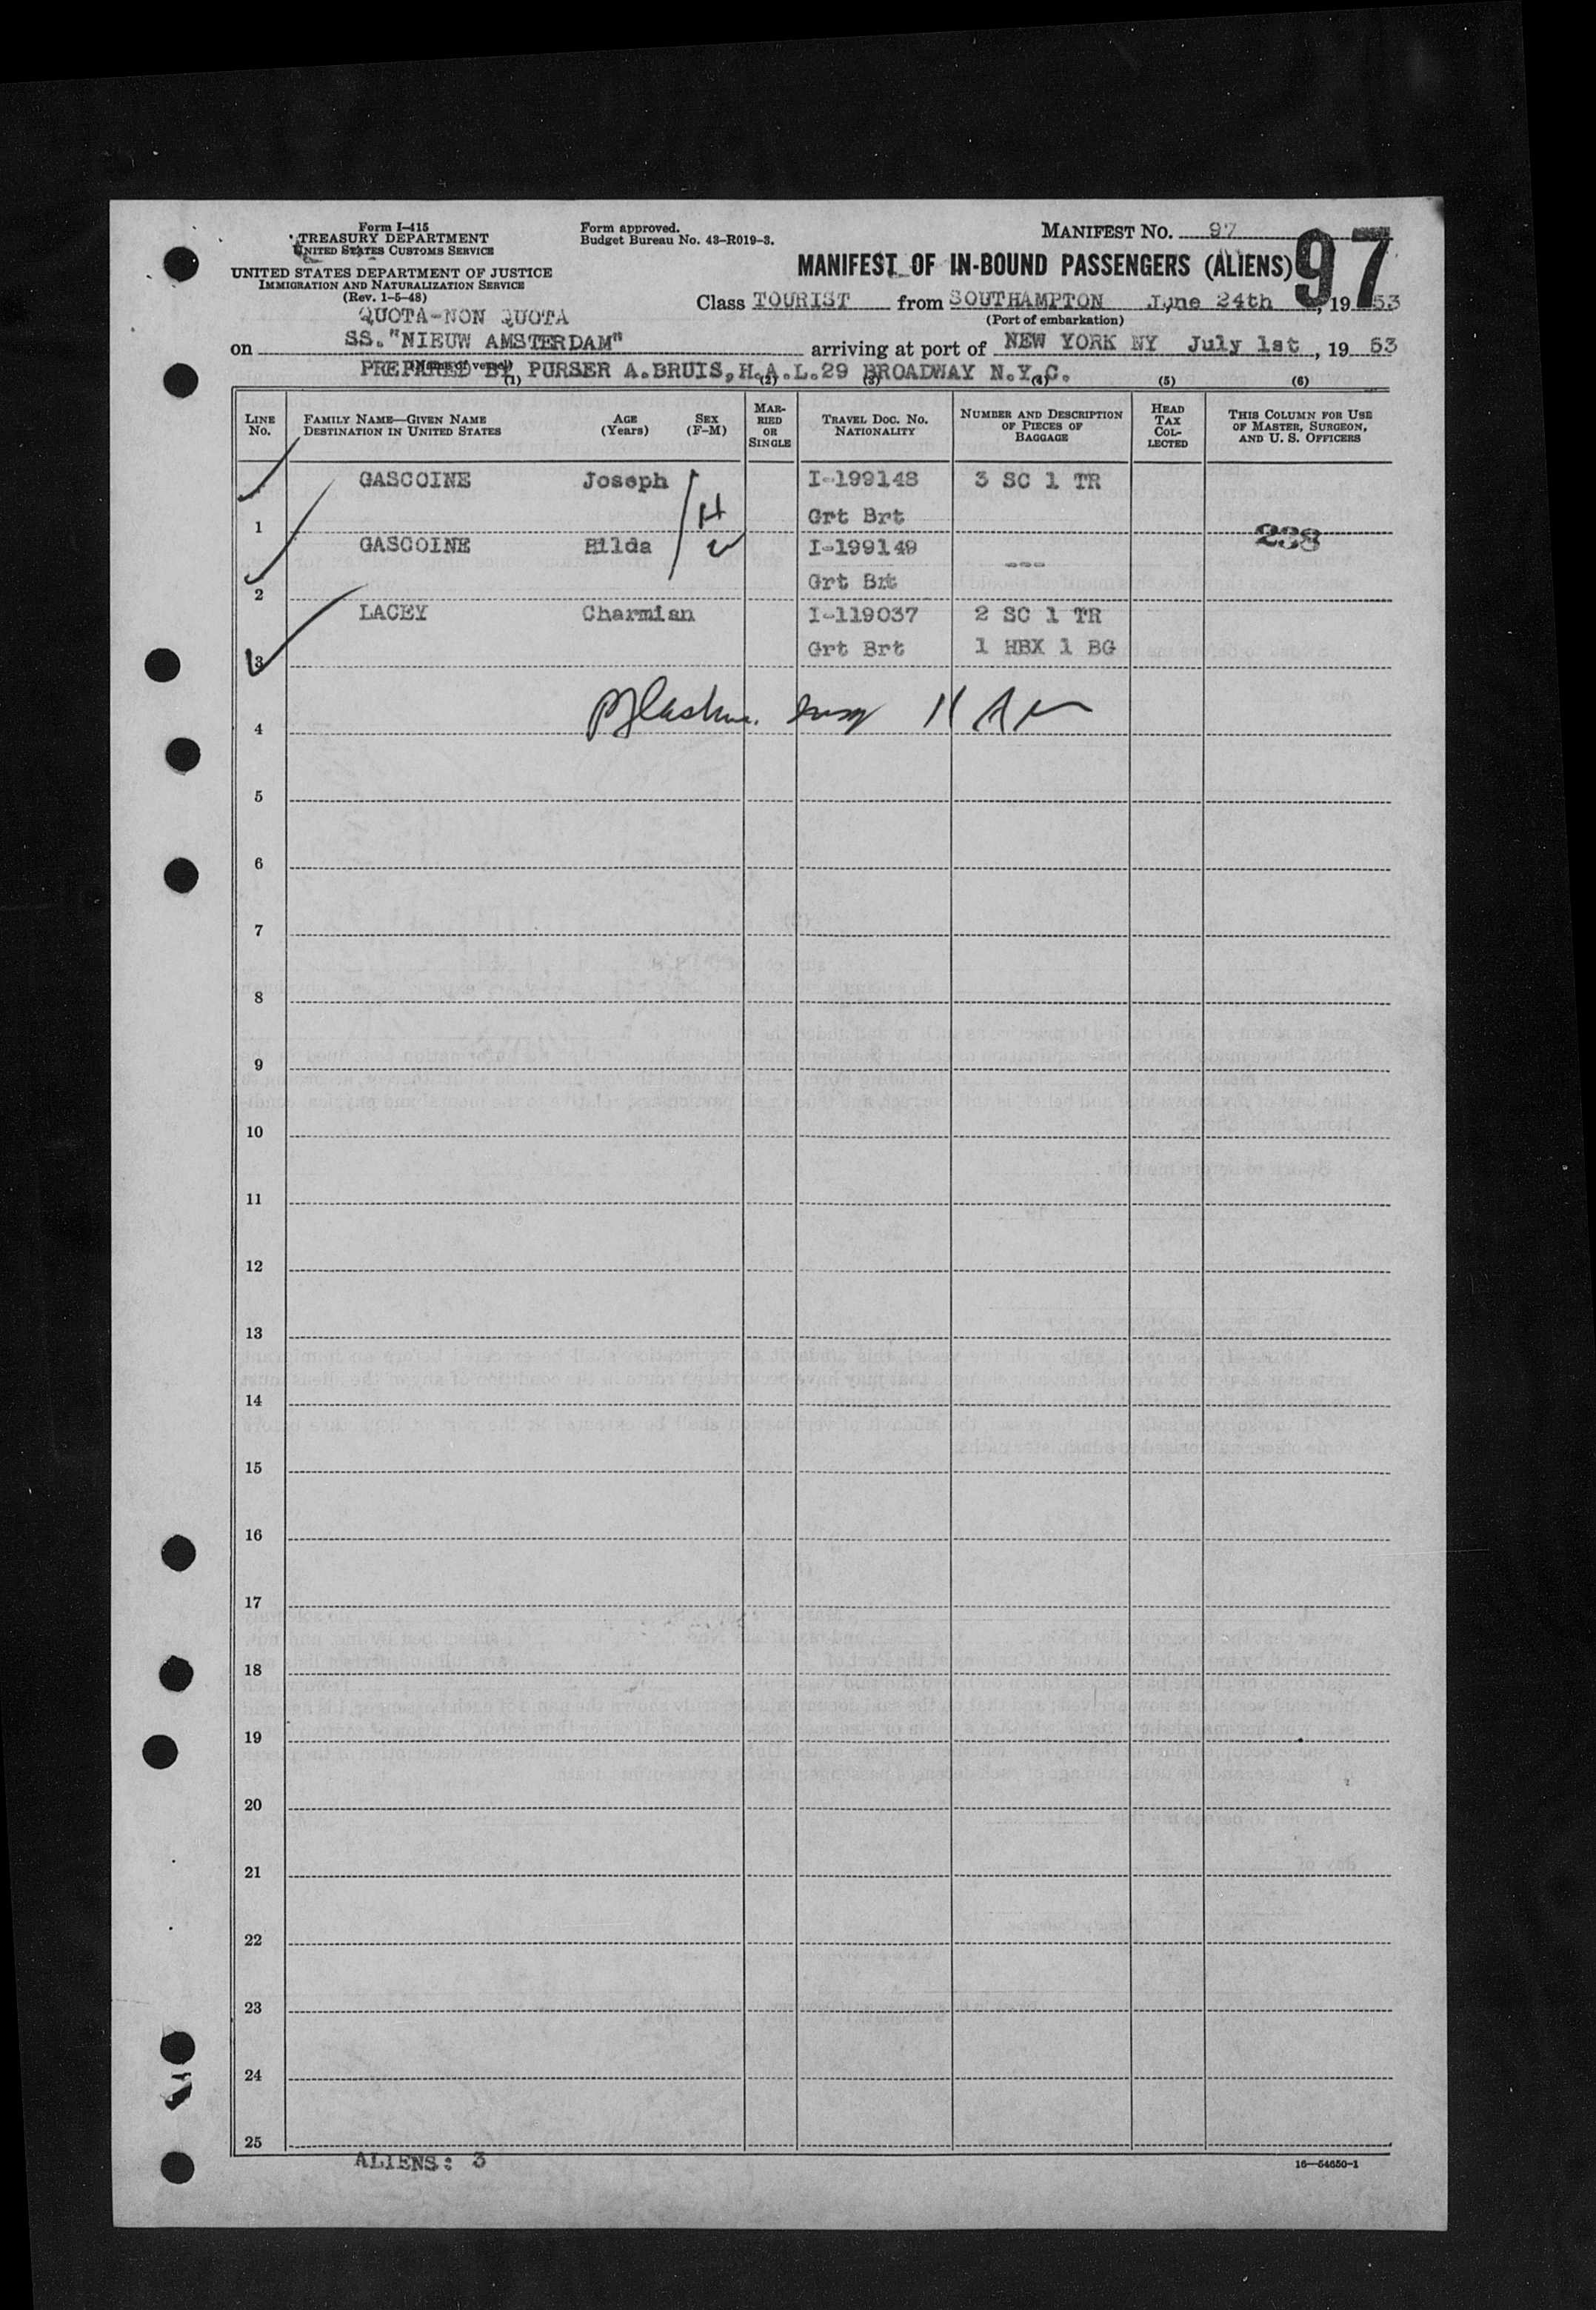 Form I-415
TREASURY DEPARTMENT
UNITED STATES CUSTOMS SERVICE
UNITED STATES DEPARTMENT OF JUSTICE
IMMIGRATION AND NATURALIZATION SERVICE
(Rev. 1-5-48)
Form approved.
Budget Bureau No. 43-R019-3.
MANIFEST NO. 97
97
MANIFEST OF IN-BOUND PASSENGERS (ALIENS)
Class TOURIST from SOUTHAMPTON June 24th, 1953
(Port of embarkation)
QUOTA-NON QUOTA
on SS."NIEUW AMSTERDAM" arriving at port of NEW YORK NY July 1st, 1953
(Name of vessel)
PREPARED BY PURSER A.BRUIS,H.A.L.29 BROADWAY N.Y.C.
(1) (2) (3) (4) (5) (6)
LINE No.
FAMILY NAME—GIVEN NAME
DESTINATION IN UNITED STATES
AGE (Years)
SEX (F-M)
MARRIED OR SINGLE
TRAVEL DOC. NO. NATIONALITY
NUMBER AND DESCRIPTION OF PIECES OF BAGGAGE
HEAD TAX COLLECTED
THIS COLUMN FOR USE OF MASTER, SURGEON, AND U. S. OFFICERS
GASCOINE Joseph I-199148 3 SC 1 TR
1 H Grt Brt
238
GASCOINE Hilda W I-199149 ---
2 Grt Brt
LACEY Charmian I-119037 2 SC 1 TR
3 Grt Brt 1 HBX 1 BG
4
5
6
7
8
9
10
11
12
13
14
15
16
17
18
19
20
21
22
23
24
25
ALIENS: 3
16—54650-1